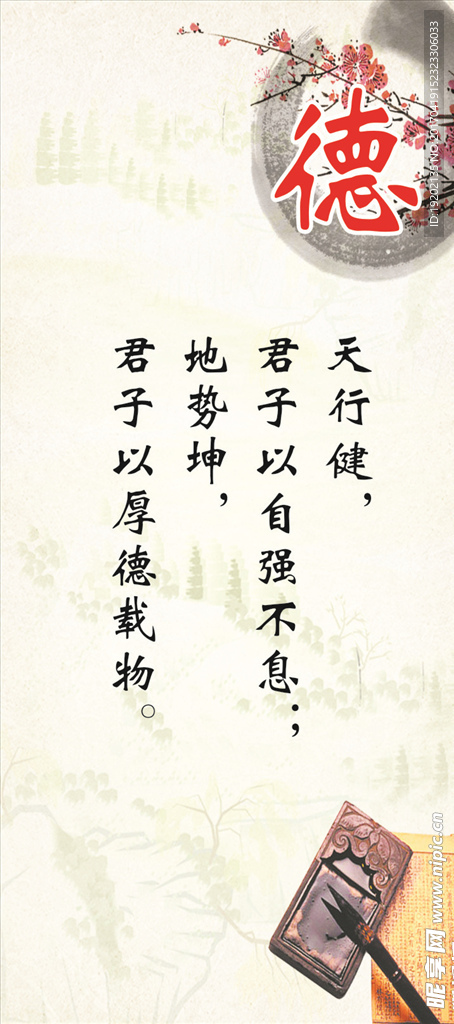 德
天行健，
君子以自强不息；
地势坤，
君子以厚德载物。
昵享网 www.nipic.cn